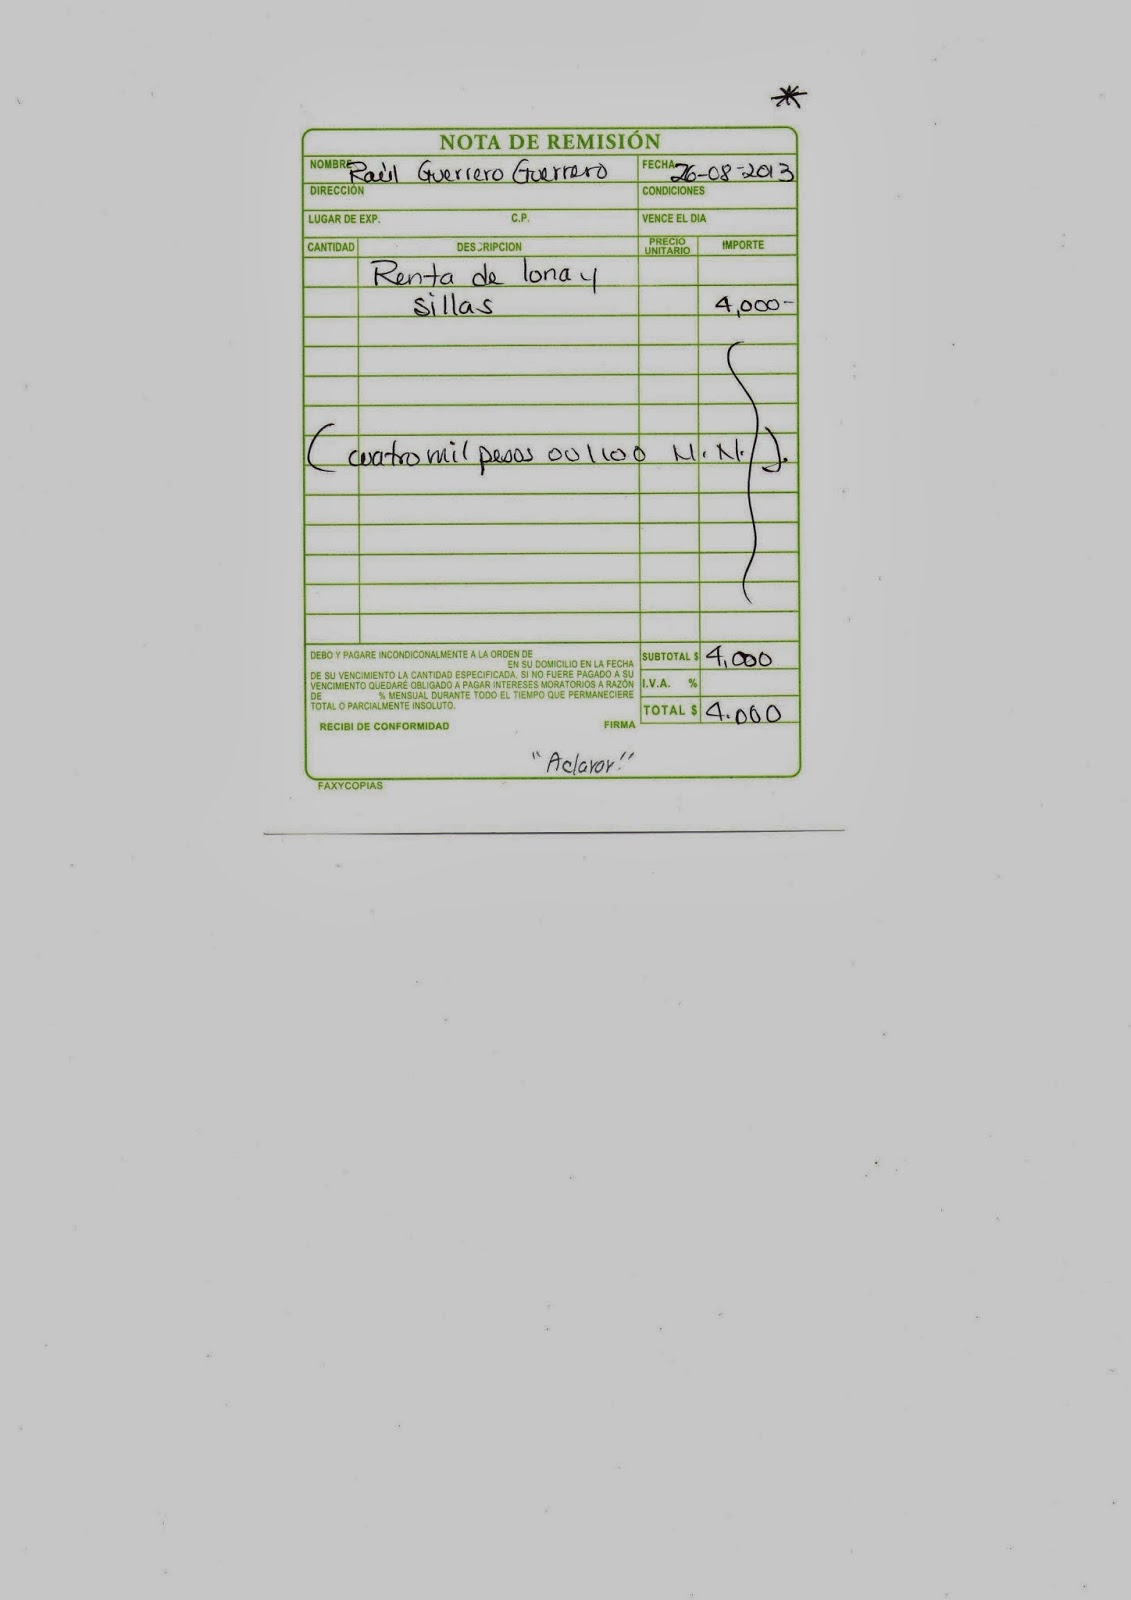 *
NOTA DE REMISIÓN
NOMBRE Raúl Guerrero Guerrero FECHA 26-08-2013
DIRECCIÓN CONDICIONES
LUGAR DE EXP. C.P. VENCE EL DIA
CANTIDAD DESCRIPCION PRECIO UNITARIO IMPORTE
Renta de lona y
sillas 4,000-
(cuatro mil pesos 00/100 M.N.).
DEBO Y PAGARE INCONDICIONALMENTE A LA ORDEN DE SUBTOTAL $ 4,000
EN SU DOMICILIO EN LA FECHA
DE SU VENCIMIENTO LA CANTIDAD ESPECIFICADA. SI NO FUERE PAGADO A SU
VENCIMIENTO QUEDARÉ OBLIGADO A PAGAR INTERESES MORATORIOS A RAZÓN I.V.A. %
DE % MENSUAL DURANTE TODO EL TIEMPO QUE PERMANECIERE
TOTAL O PARCIALMENTE INSOLUTO. TOTAL $ 4.000
RECIBI DE CONFORMIDAD FIRMA
"Aclarar!"
FAXYCOPIAS